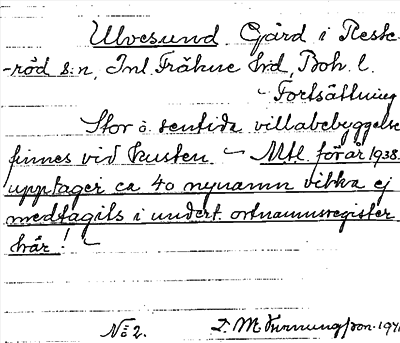 Ulvesund Gård i Reste-
-röd s:n, Inl. Fräkne hrd, Boh. l.
- Fortsättning
Stor o. sentida villabebyggelse
finnes vid kusten. - Mtl. för år 1938
upptager ca 40 nynamn vilka ej
medtagits i undert. ortnamnsregister
här! -
No 2.